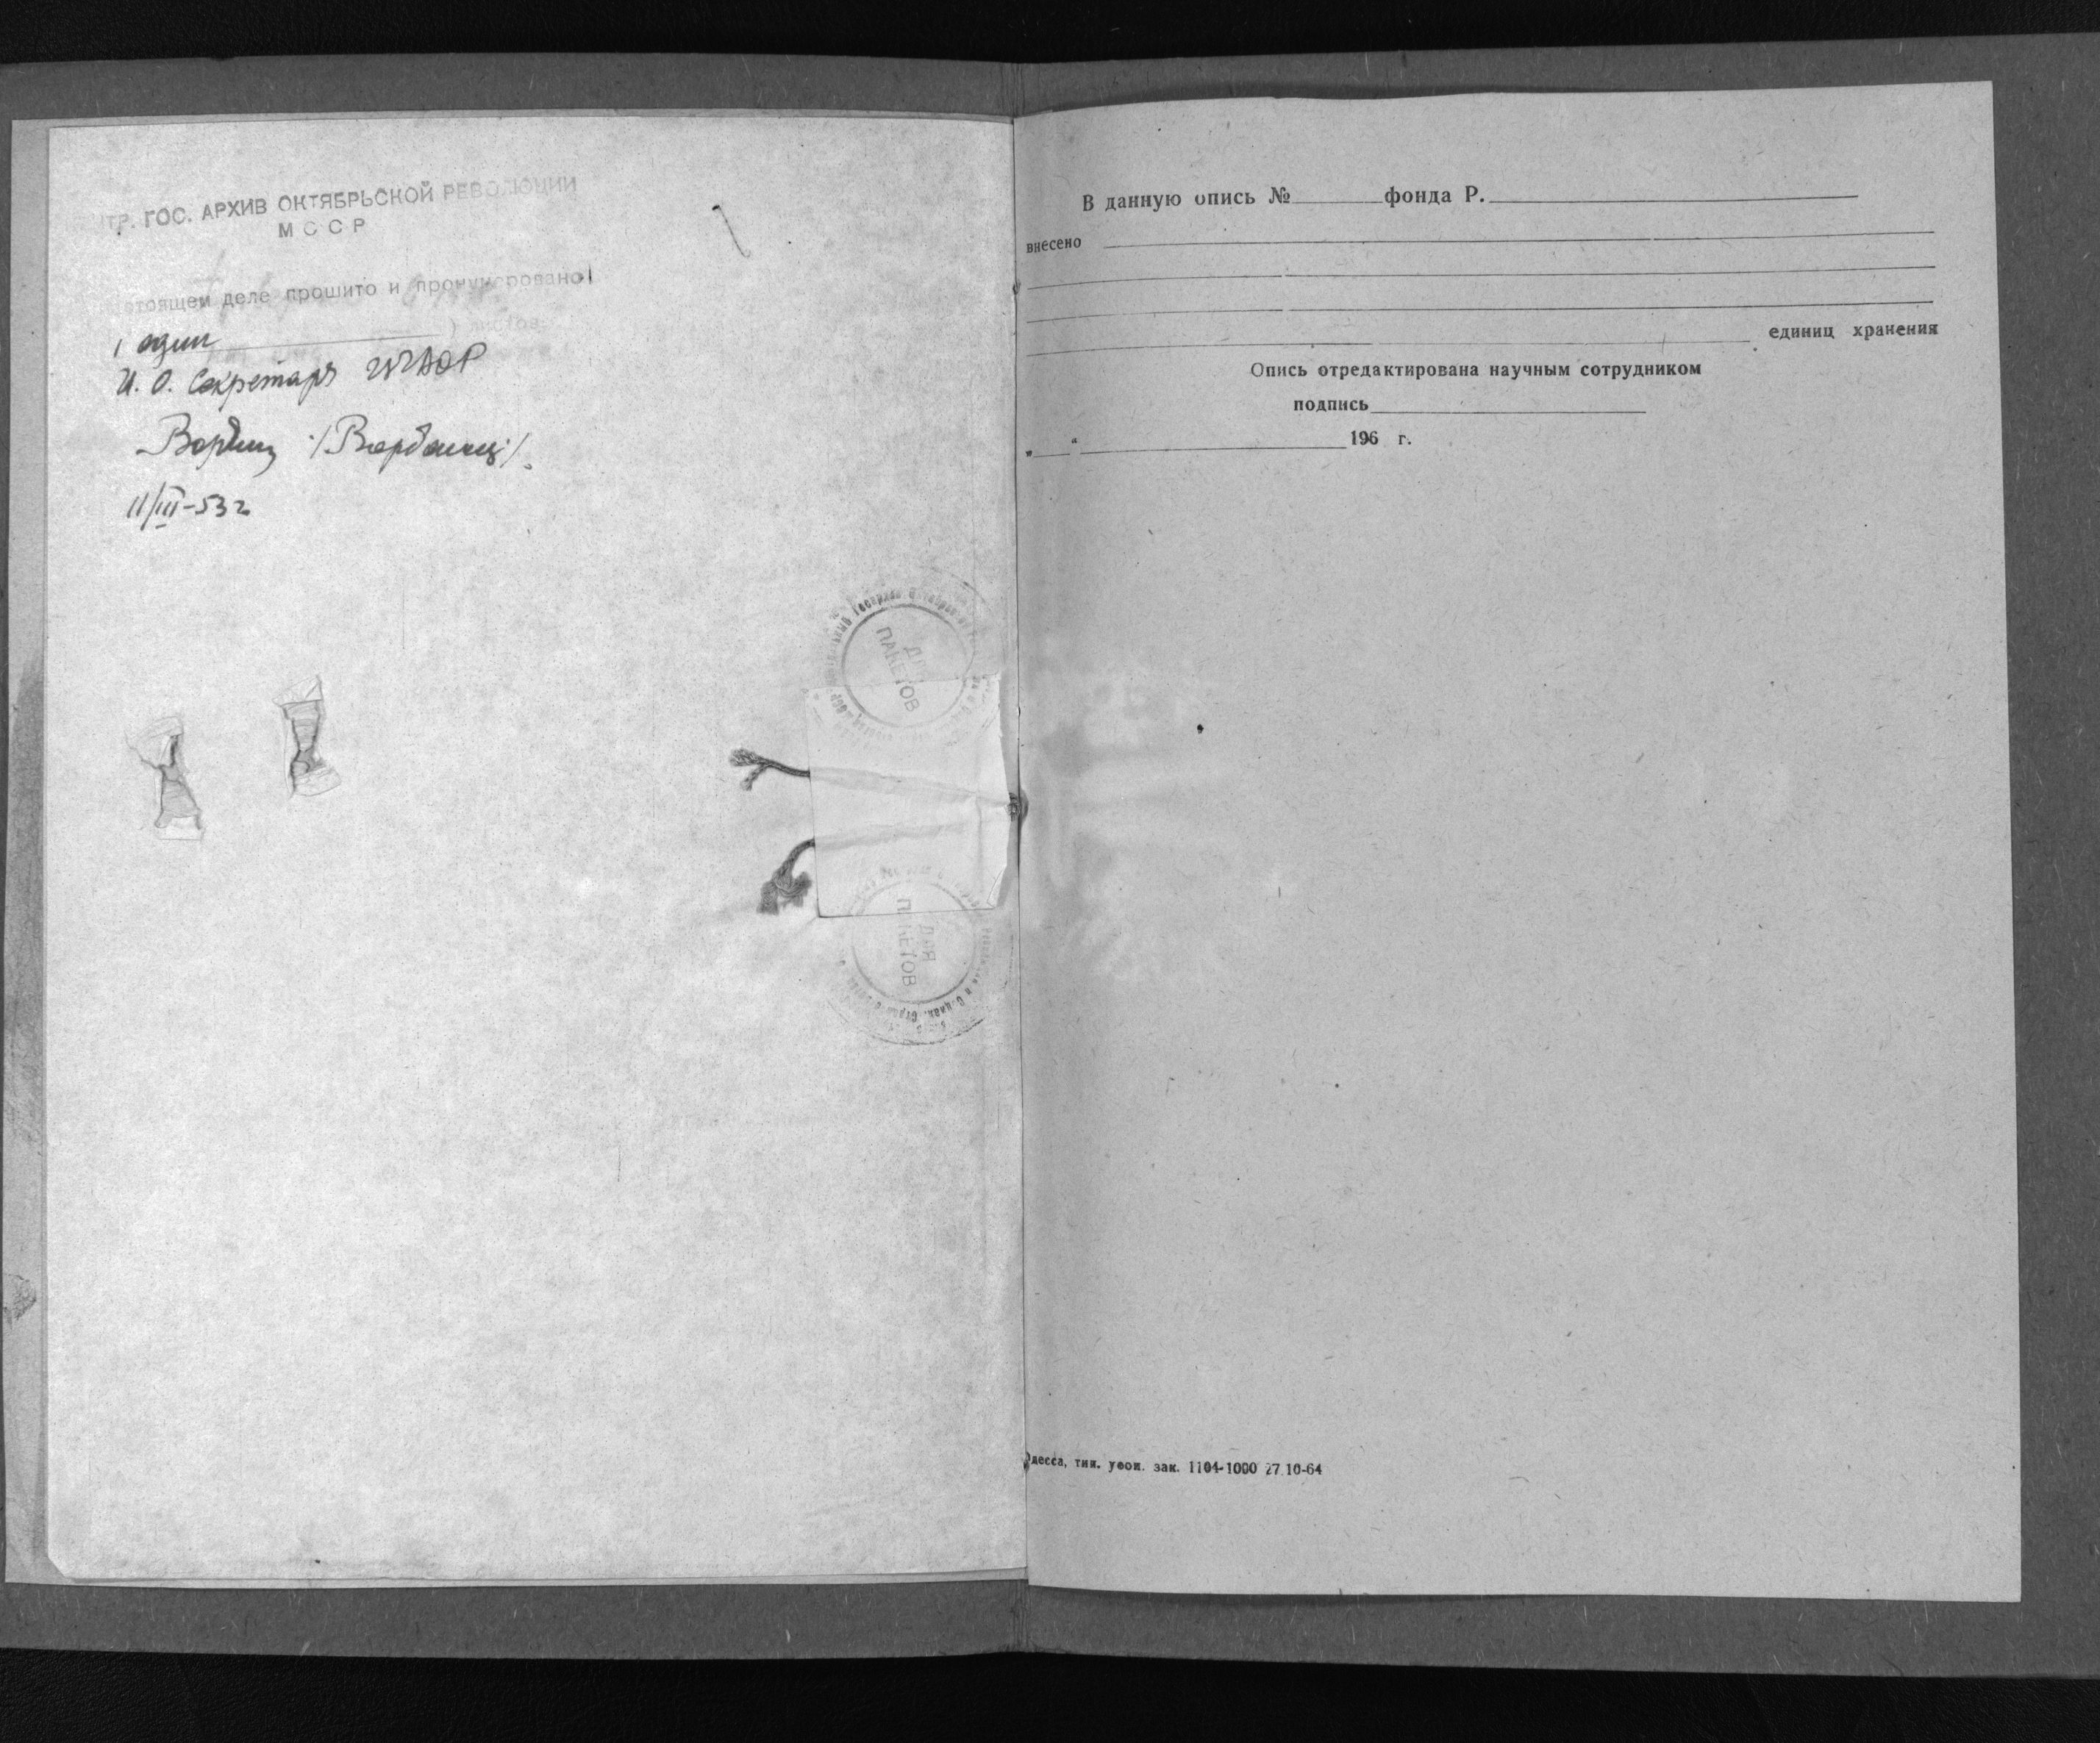 ТР. ГОС. АРХИВ ОКТЯБРЬСКОЙ РЕВОЛЮЦИИ
МССР
стоящем деле прошито и пронумеровано
1 один ) листов
И. О. Секретаря ЦГАОР
11/III-53 г
ДЛЯ
ПАКЕТОВ
ДЛЯ
ПАКЕТОВ
В данную опись № фонда Р.
внесено
единиц хранения
Опись отредактирована научным сотрудником
подпись
„ “ 196 г.
Одесса, тип. зак. 1104-1000 27.10-64